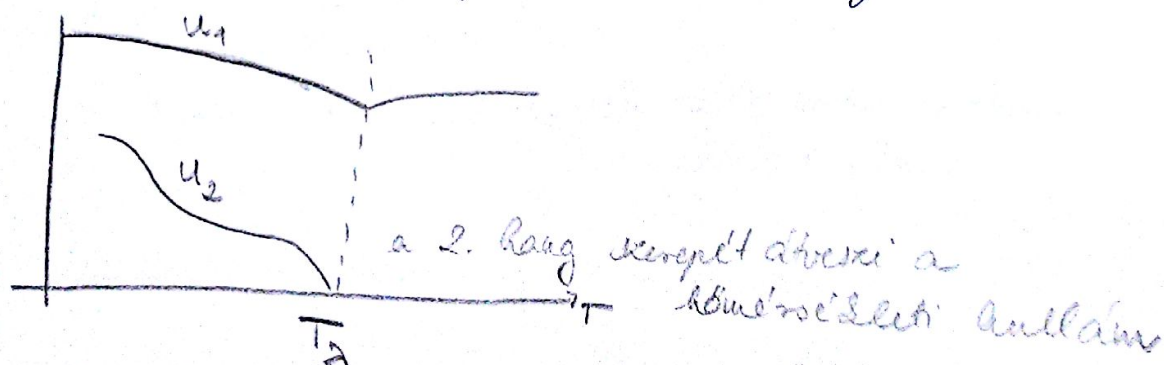 u₁
u₂
a 2. hang szerepét átveszi a
hőmérsékleti hullám
T
T_λ